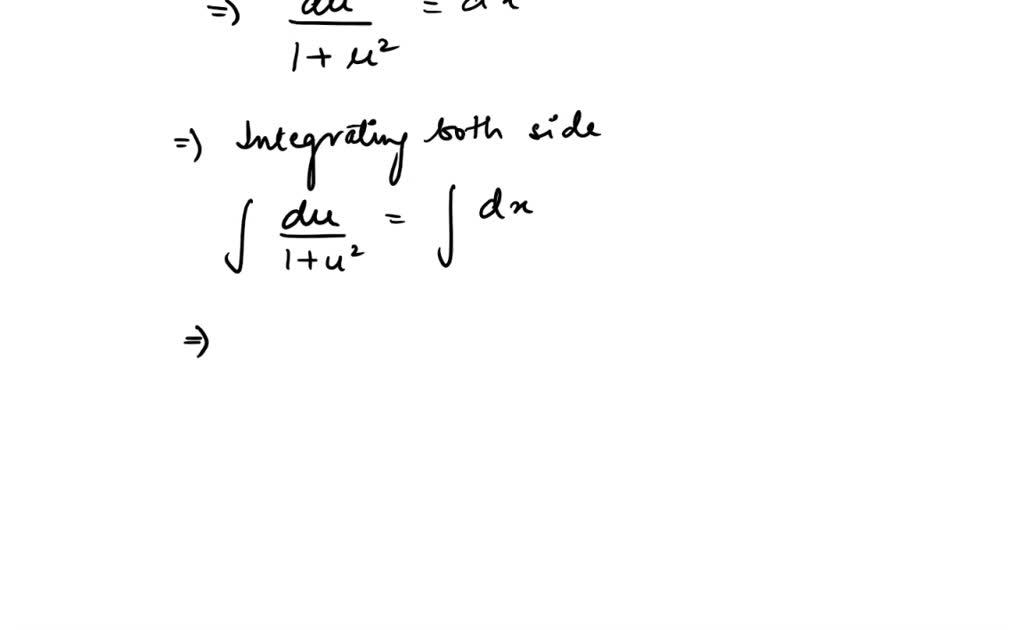 ⇒ du/1+u² = dx
⇒ Integrating both side
∫ du/1+u² = ∫ dx
⇒